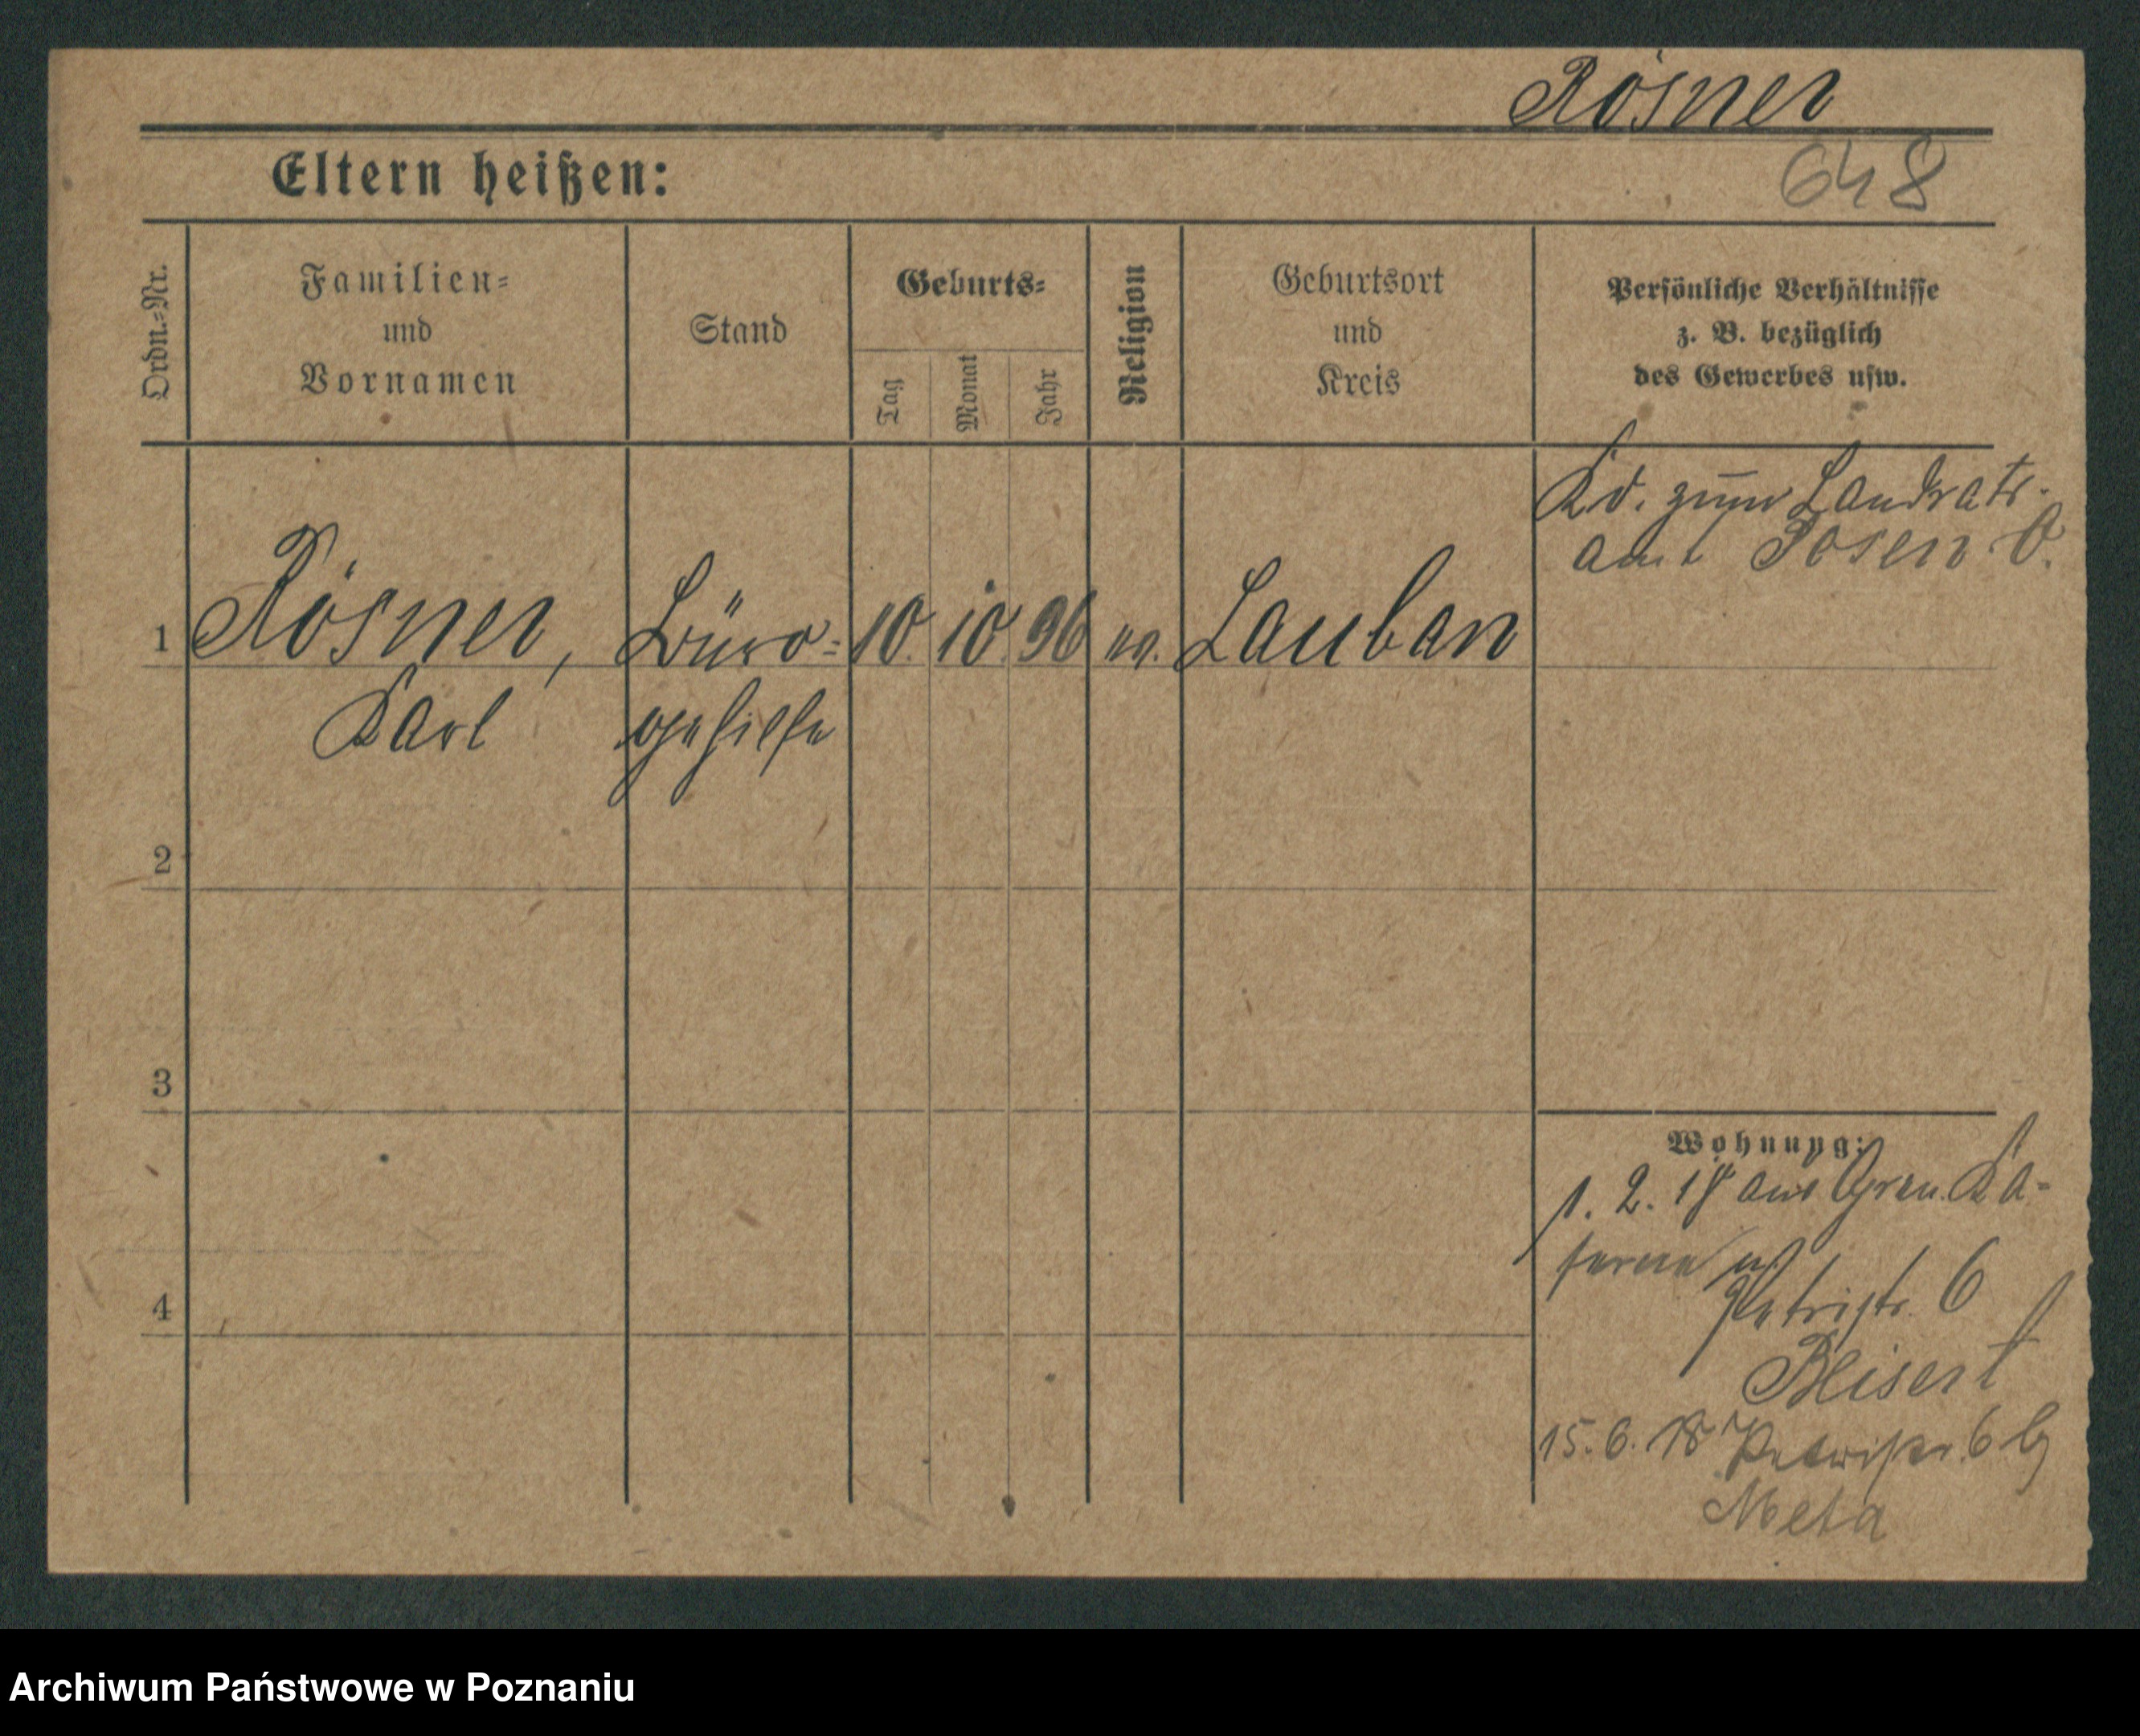 Rösner
648
Eltern heißen:
Ordn.-Nr.
Familien-
und
Vornamen
Stand
Geburts-
Tag
Monat
Jahr
Religion
Geburtsort
und
Kreis
Persönliche Verhältnisse
z. B. bezüglich
des Gewerbes usw.
Kd. zum Landrats-
amt Posen O.
1 Rösner, Büro- 10. 10. 96 ev. Lauban
Karl gehilfe
2
3
4
Wohnung:
1. 2. 18 aus Gren. Ka-
serne n/
Petristr. 6
15. 6. 18 Petristr. 6
Meta
Archiwum Państwowe w Poznaniu